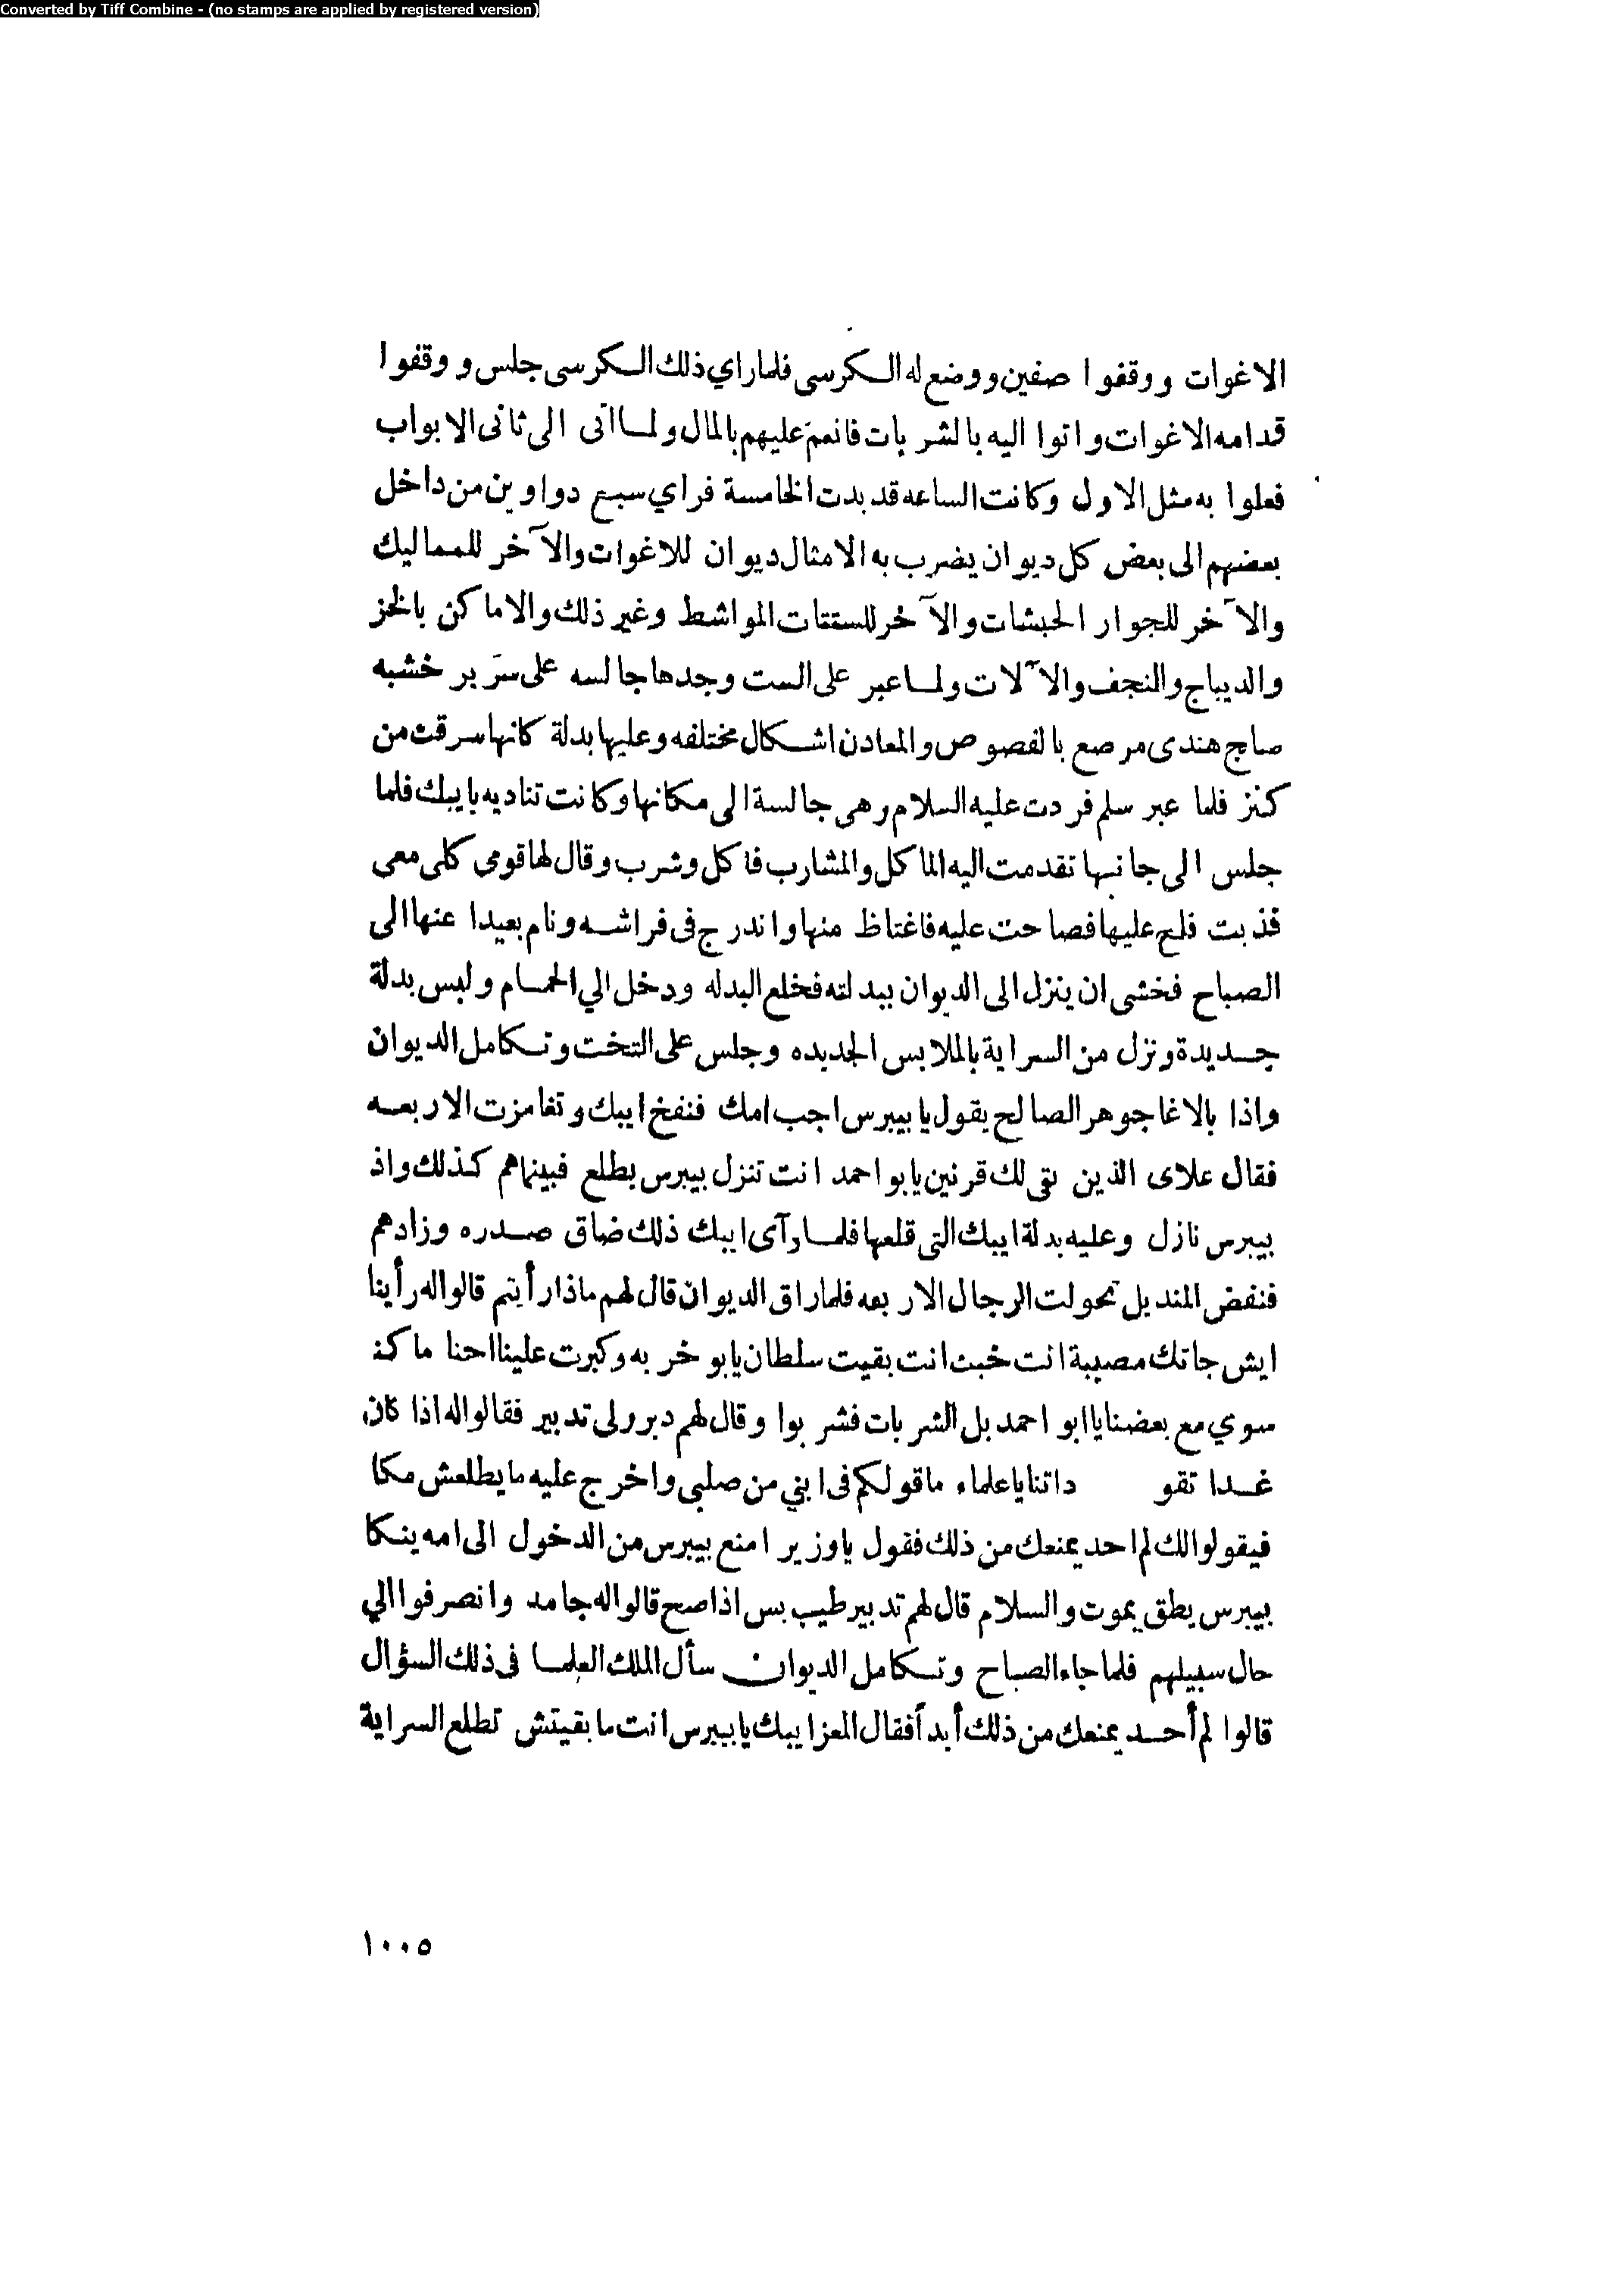 Converted by Tiff Combine - (no stamps are applied by registered version)
الاغوات ووقفوا صفين ووضع له الكرسى فلما راي ذلك الكرسى جلس و وقفوا
قدامه الاغوات واتوا اليه بالشربات فانعم عليهم بالمال ولما اتى الى ثانى الابواب
فعلوا به مثل الاول وكانت الساعه قد بدت الخامسة فراي سبع دواوين من داخل
بعضهم الى بعض كل ديوان يضرب به الامثال ديوان للاغوات والآخر للمماليك
والآخر للجوار الحبشات والآخر للستتات المواشط وغير ذلك والاماكن بالخز
والديباج والنجف والآلات ولما عبر على الست وجدها جالسه على سرير خشبه
صاج هندى مرصع بالفصوص والمعادن اشكال مختلفه وعليها بدلة كانها سرقت من
كنز فلما عبر سلم فردت عليه السلام وهى جالسة الى مكانها وكانت تناديه يا يبك فلما
جلس الى جانبها تقدمت اليه الماكل والمشارب فاكل وشرب وقال لها قومى كلى معى
فذبت فلح عليها فصاحت عليه فاغتاظ منها واندرج فى فراشه ونام بعيدا عنها الى
الصباح فخشى ان ينزل الى الديوان ببدلته فخلع البدله ودخل الي الحمام ولبس بدلة
جديدة ونزل من السراية بالملابس الجديده وجلس على التخت وتكامل الديوان
واذا بالاغا جوهر الصالح يقول يا بيبرس اجب امك فنفخ ايبك وتغامزت الاربعه
فقال علاى الذين بقى لك قرنين يابو احمد انت تنزل بيبرس يطلع فبينماهم كذلك واذ
بيبرس نازل وعليه بدلة ايبك التى قلعها فلما رآى ايبك ذلك ضاق صدره وزادهم
فنفض المنديل تحولت الرجال الاربعه فلما راق الديوان قال لهم ماذا رأيتم قالوا له رأينا
ايش جاتك مصيبة انت خبت انت بقيت سلطان يابو خربه وكبرت علينا احنا ما كنـ
سوي مع بعضنا يا ابو احمد بل الشربات فشربوا وقال لهم دبرولى تدبير فقالوا له اذا كان
غدا تقو داتنا يا علماء ما قولكم فى ابني من صلبى واخرج عليه ما يطلعش مكا
فيقولوا لك لم احد يمنعك من ذلك فقول يا وزير امنع بيبرس من الدخول الى امه ينكا
بيبرس يطق يموت والسلام قال لهم تدبير طيب بس اذا صح قالوا له جامد وانصرفوا الي
حال سبيلهم فلما جاء الصباح وتكامل الديوان سأل الملك العلما فى ذلك السؤال
قالوا لم أحد يمنعك من ذلك أبداً فقال المعز ايبك يا بيبرس انت ما بقيتش تطلع السراية
١٠٠٥